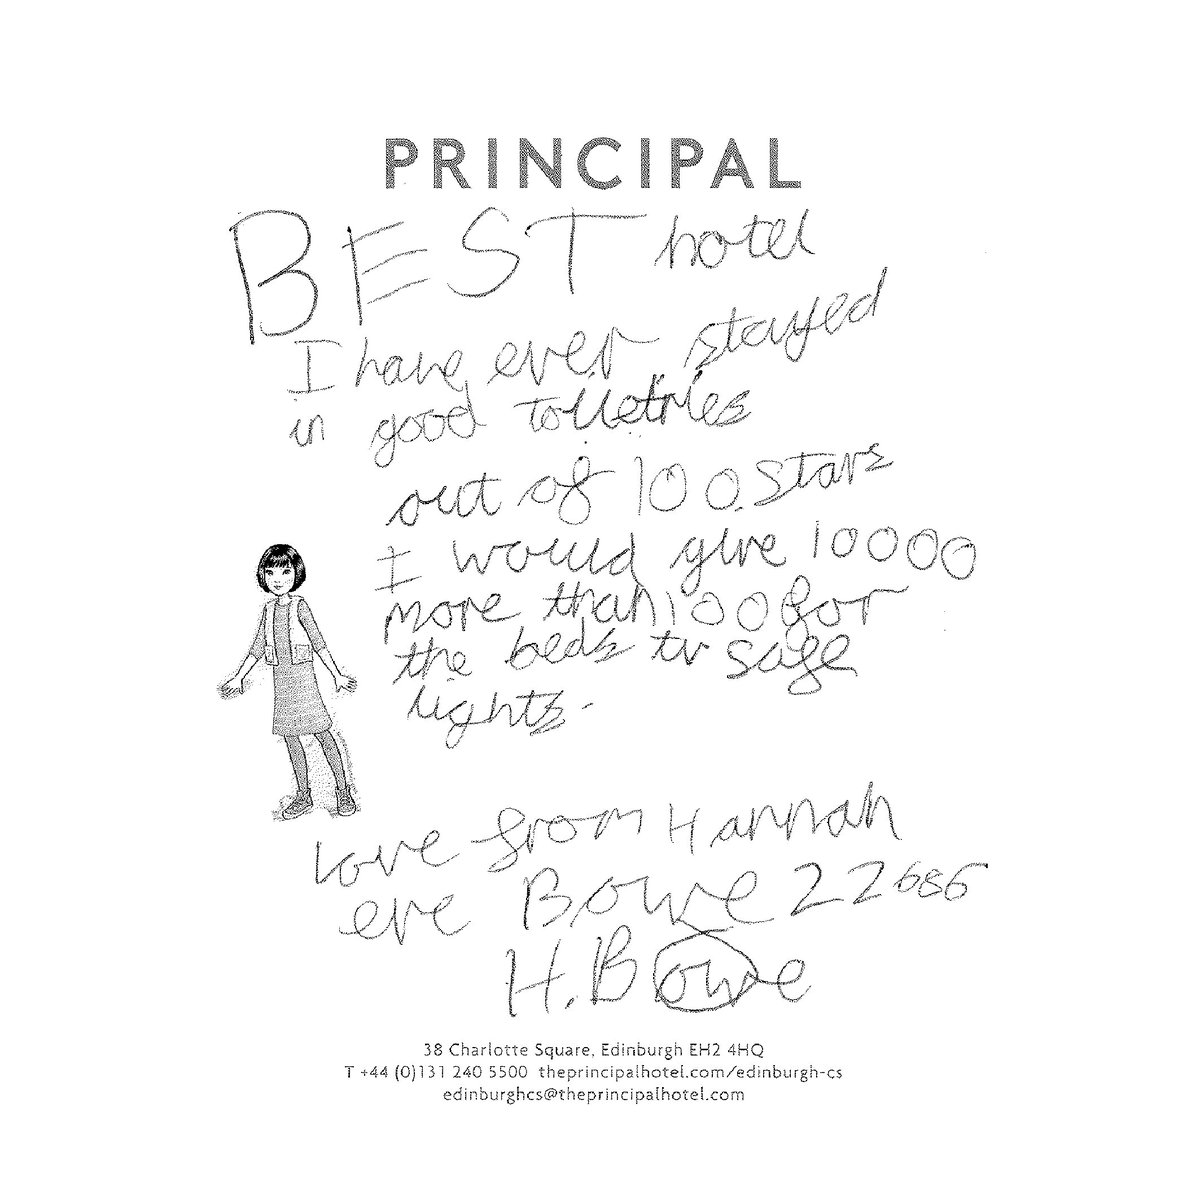 PRINCIPAL
BEST hotel
I have ever stayed
in good toiletries
out of 100. Stars
I would give 10000
more than 100 for
the beds tv safe
lights.
Love from Hannah
eve Bowe 22686
H. Bowe
38 Charlotte Square, Edinburgh EH2 4HQ
T +44 (0)131 240 5500 theprincipalhotel.com/edinburgh-cs
edinburghcs@theprincipalhotel.com